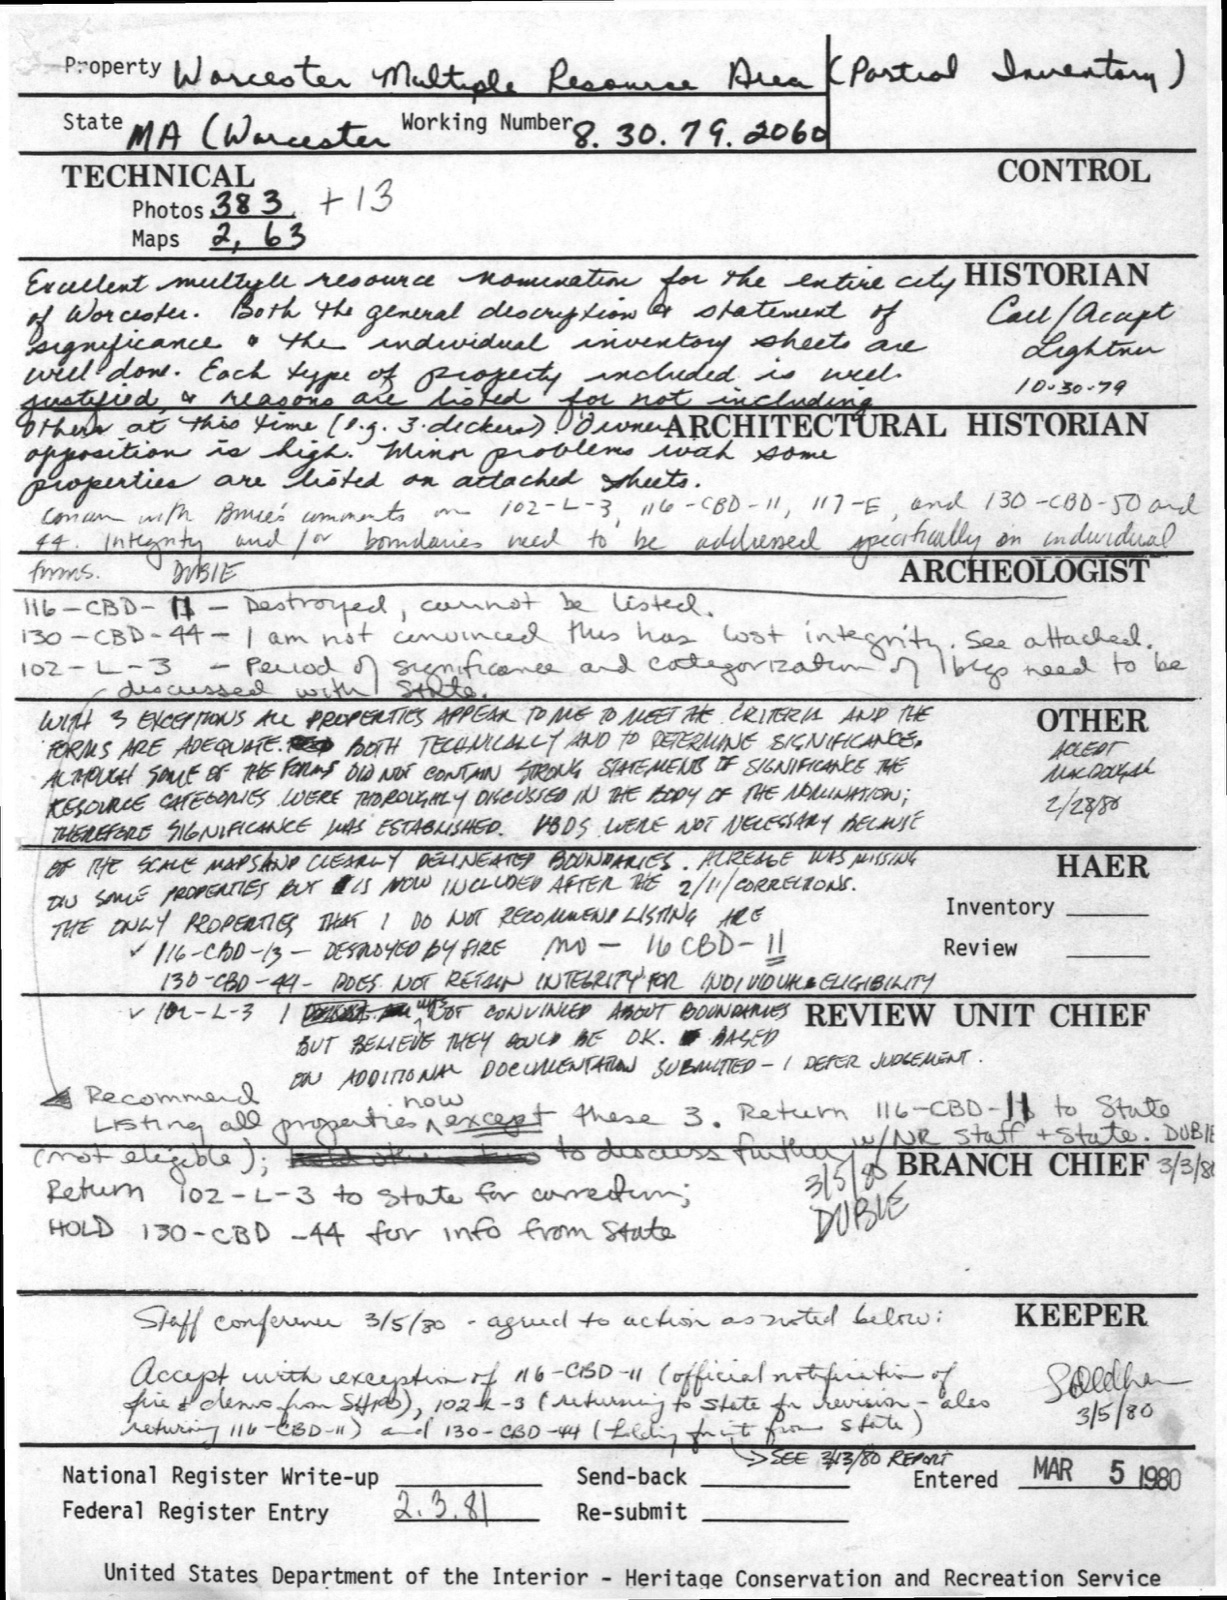 Property Worcester Multiple Resource Area (Partial Inventory)
State MA (Worcester Working Number 8.30.79.2060
TECHNICAL CONTROL
Photos 383 + 13
Maps 2, 63
Excellent multiple resource nomination for the entire city HISTORIAN
of Worcester. Both the general description & statement of Call/Accept
significance & the individual inventory sheets are Lightner
well done. Each type of property included is well- 10-30-79
justified, & reasons are listed for not including
others at this time (e.g. 3-deckers). Owner ARCHITECTURAL HISTORIAN
opposition is high. Minor problems with some
properties are listed on attached sheets.
Concur with Bruce's comments on 102-L-3, 116-CBD-11, 117-E, and 130-CBD-50 and
44. Integrity and/or boundaries need to be addressed specifically on individual
forms. DUBIE ARCHEOLOGIST
116-CBD-11 - Destroyed, cannot be listed.
130-CBD-44 - I am not convinced this has lost integrity. See attached.
102-L-3 - Period of significance and categorization of bldgs need to be
discussed with State.
WITH 3 EXCEPTIONS ALL PROPERTIES APPEAR TO ME TO MEET THE CRITERIA AND THE OTHER
FORMS ARE ADEQUATE. BOTH TECHNICALLY AND TO DETERMINE SIGNIFICANCE. ACCEPT
ALTHOUGH SOME OF THE FORMS DID NOT CONTAIN STRONG STATEMENTS OF SIGNIFICANCE THE MACDOUGAL
RESOURCE CATEGORIES WERE THOROUGHLY DISCUSSED IN THE BODY OF THE NOMINATION; 2/28/80
THEREFORE SIGNIFICANCE WAS ESTABLISHED. VBDS WERE NOT NECESSARY BECAUSE
OF THE SCALE MAPS AND CLEARLY DELINEATED BOUNDARIES. ACREAGE WAS MISSING HAER
ON SOME PROPERTIES BUT IS NOW INCLUDED AFTER THE 2/11/ CORRECTIONS.
THE ONLY PROPERTIES THAT I DO NOT RECOMMEND LISTING ARE Inventory
✓ 116-CBD-13 - DESTROYED BY FIRE NO - 116 CBD-11 Review
130-CBD-44 - DOES NOT RETAIN INTEGRITY FOR INDIVIDUAL ELIGIBILITY
✓ 102-L-3 I was NOT CONVINCED ABOUT BOUNDARIES REVIEW UNIT CHIEF
BUT BELIEVE THEY COULD BE OK. BASED
ON ADDITIONAL DOCUMENTATION SUBMITTED - I DEFER JUDGEMENT.
Recommend
Listing all properties now except these 3. Return 116-CBD-11 to State
(not eligible); to discuss further w/NR staff + State. DUBIE
BRANCH CHIEF 3/3/80
Return 102-L-3 to State for correction; 3/5/80
HOLD 130-CBD-44 for info from State DUBIE
Staff conference 3/5/80 - agreed to action as noted below: KEEPER
Accept with exception of 116-CBD-11 (official notification of
fire & demo from SHPO), 102-L-3 (returning to State for revision - also
returning 116-CBD-11) and 130-CBD-44 (holding for it from State) 3/5/80
SEE 3/13/80 REPORT
National Register Write-up Send-back Entered MAR 5 1980
Federal Register Entry 2.3.81 Re-submit
United States Department of the Interior - Heritage Conservation and Recreation Service